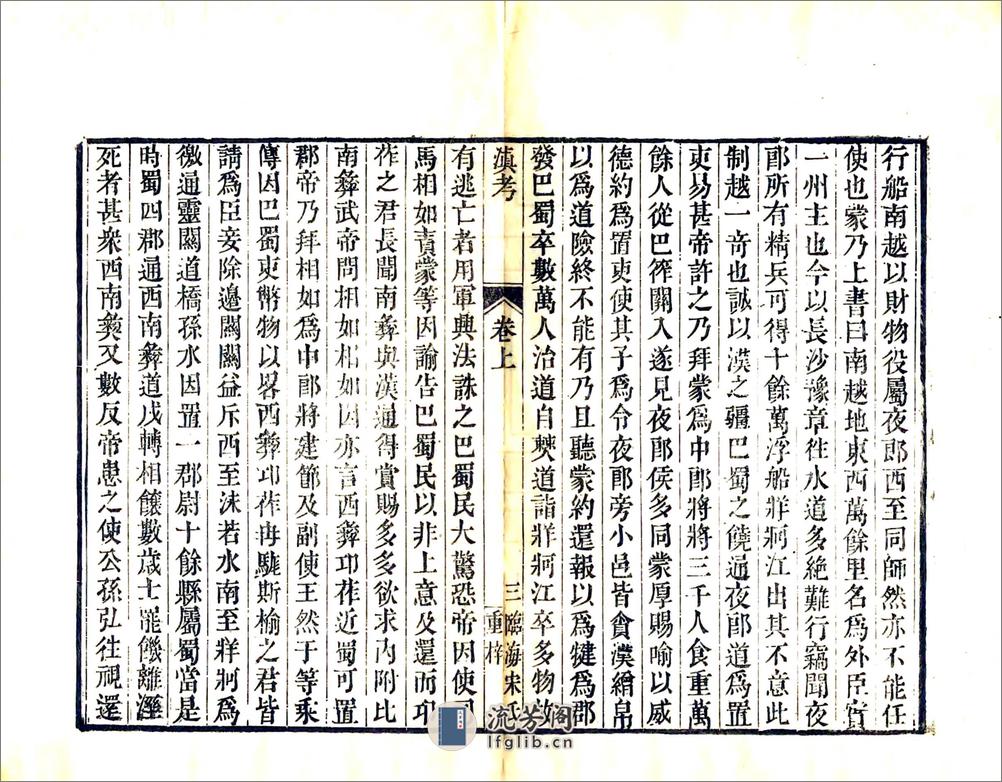 行船南越以財物役屬夜郎西至同師然亦不能任
使也蒙乃上書曰南越地東西萬餘里名爲外臣實
一州主也今以長沙豫章徃水道多絶難行竊聞夜
郎所有精兵可得十餘萬浮船牂牁江出其不意此
制越一奇也誠以漢之疆巴蜀之饒通夜郎道爲置
吏易甚帝許之乃拜蒙爲中郎將將三千人食重萬
餘人從巴筰關入遂見夜郎侯多同蒙厚賜喻以威
德約爲置吏使其子爲令夜郎旁小邑皆貪漢繒帛
以爲道險終不能有乃且聽蒙約還報以爲犍爲郡
發巴蜀卒數萬人治道自僰道詣牂牁江卒多物故
滇考 卷上 三 臨海宋氏重梓
有逃亡者用軍興法誅之巴蜀民大驚恐帝因使司
馬相如責蒙等因諭告巴蜀民以非上意及還而邛
莋之君長聞南彝與漢通得賞賜多多欲求内附比
南彝武帝問相如相如因亦言西彝邛莋近蜀可置
郡帝乃拜相如爲中郎將建節及副使王然于等乘
傳因巴蜀吏幣物以畧西彝邛莋冉駹斯榆之君皆
請爲臣妾除邊關關益斥西至沬若水南至牂牁爲
徼通靈關道橋孫水因置一郡尉十餘縣屬蜀當是
時蜀四郡通西南彝道戍轉相饟數歳士罷餓離溼
死者甚衆西南彝又數反帝患之使公孫弘徃視還
流芳阁
lfglib.cn